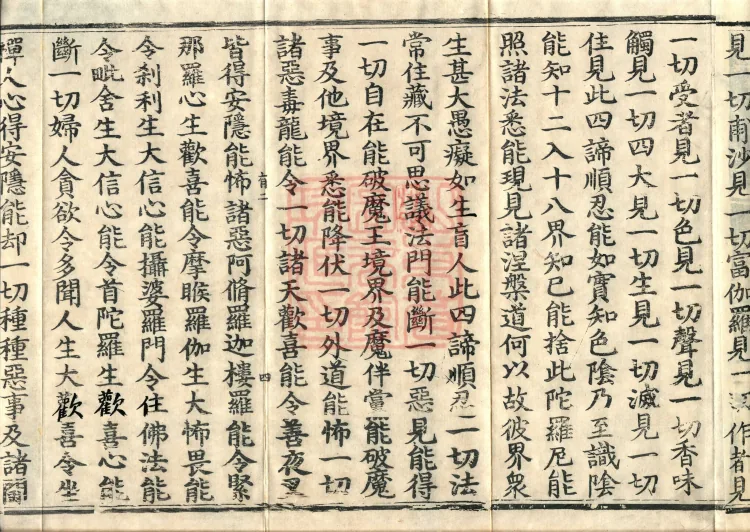 見一切甫沙見一切富伽羅見一切作者見
一切受者見一切色見一切聲見一切香味
觸見一切四大見一切生見一切滅見一切
住見此四諦順忍能如實知色陰乃至識陰
能知十二入十八界知已能捨此陀羅尼能
照諸法悉能現見諸涅槃道何以故彼界衆
生甚大愚癡如生盲人此四諦順忍一切法
常住藏不可思議法門能斷一切惡見能得
一切自在能破魔王境界及魔伴黨能破魔
事及他境界悉能降伏一切外道能怖一切
諸惡毒龍能令一切諸天歡喜能令善夜叉
皆得安隱能怖諸惡阿脩羅迦樓羅能令緊
那羅心生歡喜能令摩睺羅伽生大怖畏能
令刹利生大信心能攝婆羅門令住佛法能
令毗舍生大信心能令首陀羅生歡喜心能
斷一切婦人貪欲令多聞人生大歡喜令坐
禪人心得安隱能却一切種種惡事及諸鬭
四